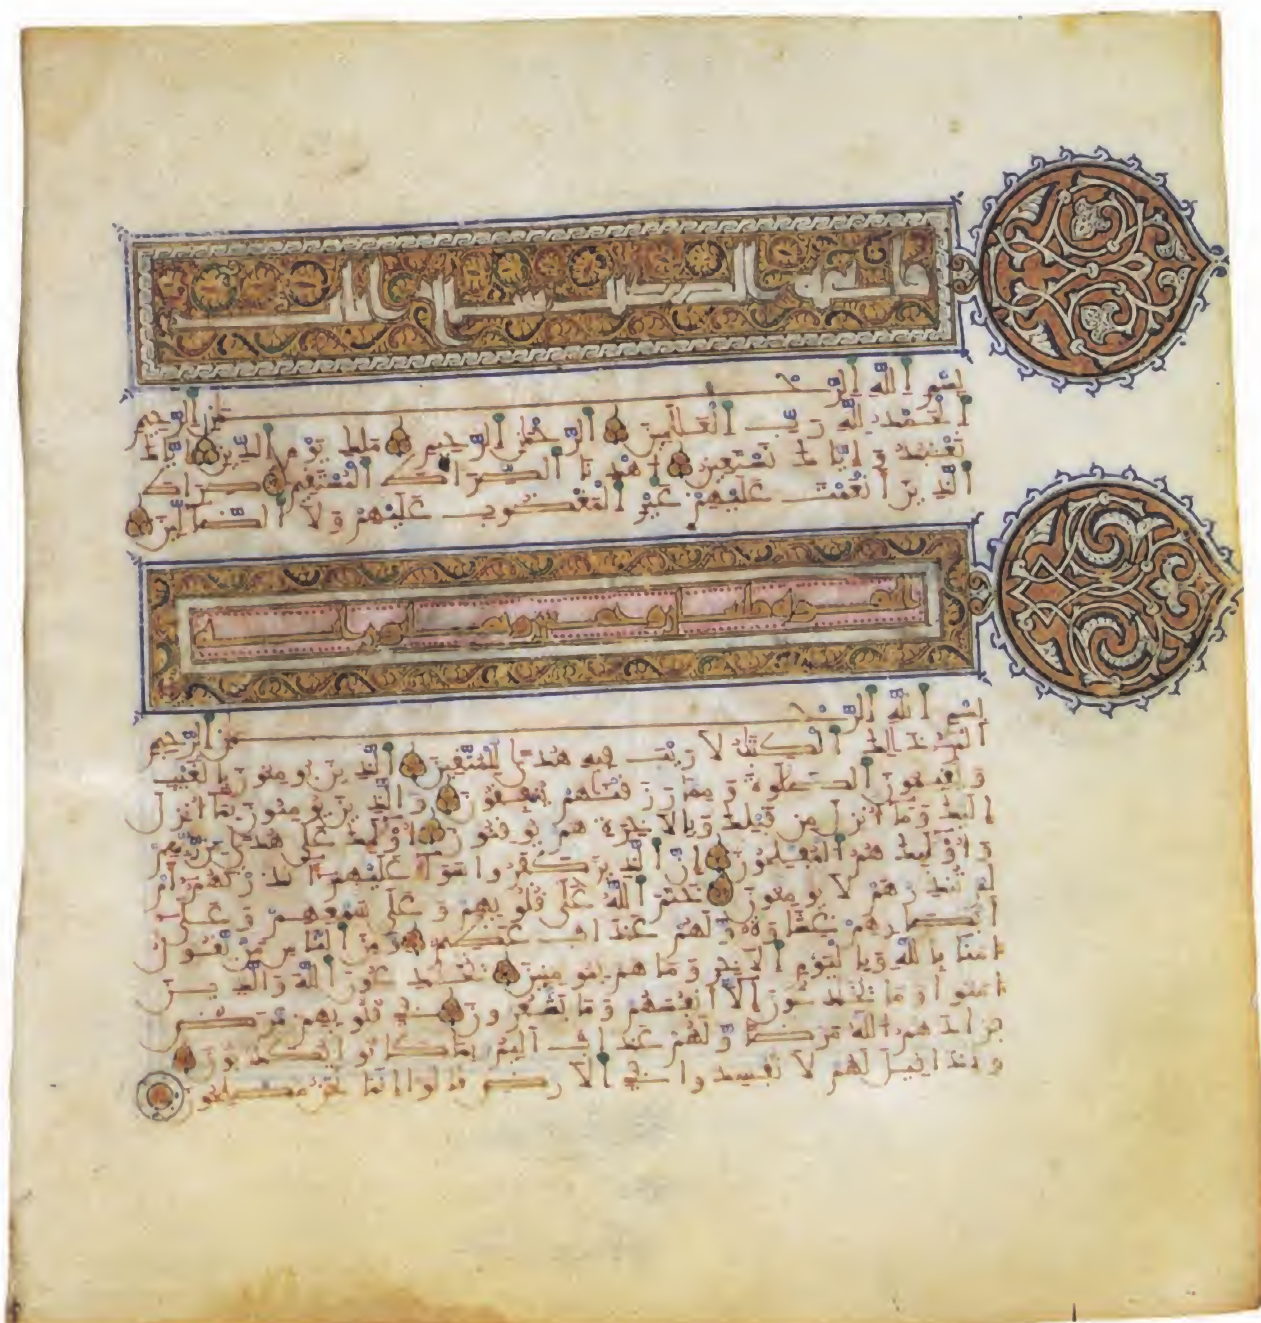 بسم الله الرحمن الرحيم
الحمد لله رب العلمين الرحمن الرحيم ملك يوم الدين اياك
نعبد واياك نستعين اهدنا الصراط المستقيم صراط
الذين انعمت عليهم غير المغضوب عليهم ولا الضالين
بسم الله الرحمن الرحيم
الم ذلك الكتب لا ريب فيه هدى للمتقين الذين يومنون بالغيب
ويقيمون الصلوة ومما رزقنهم ينفقون والذين يومنون بما انزل
اليك وما انزل من قبلك وبالاخرة هم يوقنون اولئك على هدى من ربهم
واولئك هم المفلحون ان الذين كفروا سوا عليهم ءانذرتهم ام
لم تنذرهم لا يومنون ختم الله على قلوبهم وعلى سمعهم وعلى
ابصرهم غشوة ولهم عذاب عظيم ومن الناس من يقول
امنا بالله وباليوم الاخر وما هم بمومنين يخدعون الله والذين
امنوا وما يخدعون الا انفسهم وما يشعرون في قلوبهم مرض
فزادهم الله مرضا ولهم عذاب اليم بما كانوا يكذبون
واذا قيل لهم لا تفسدوا في الارض قالوا انما نحن مصلحون